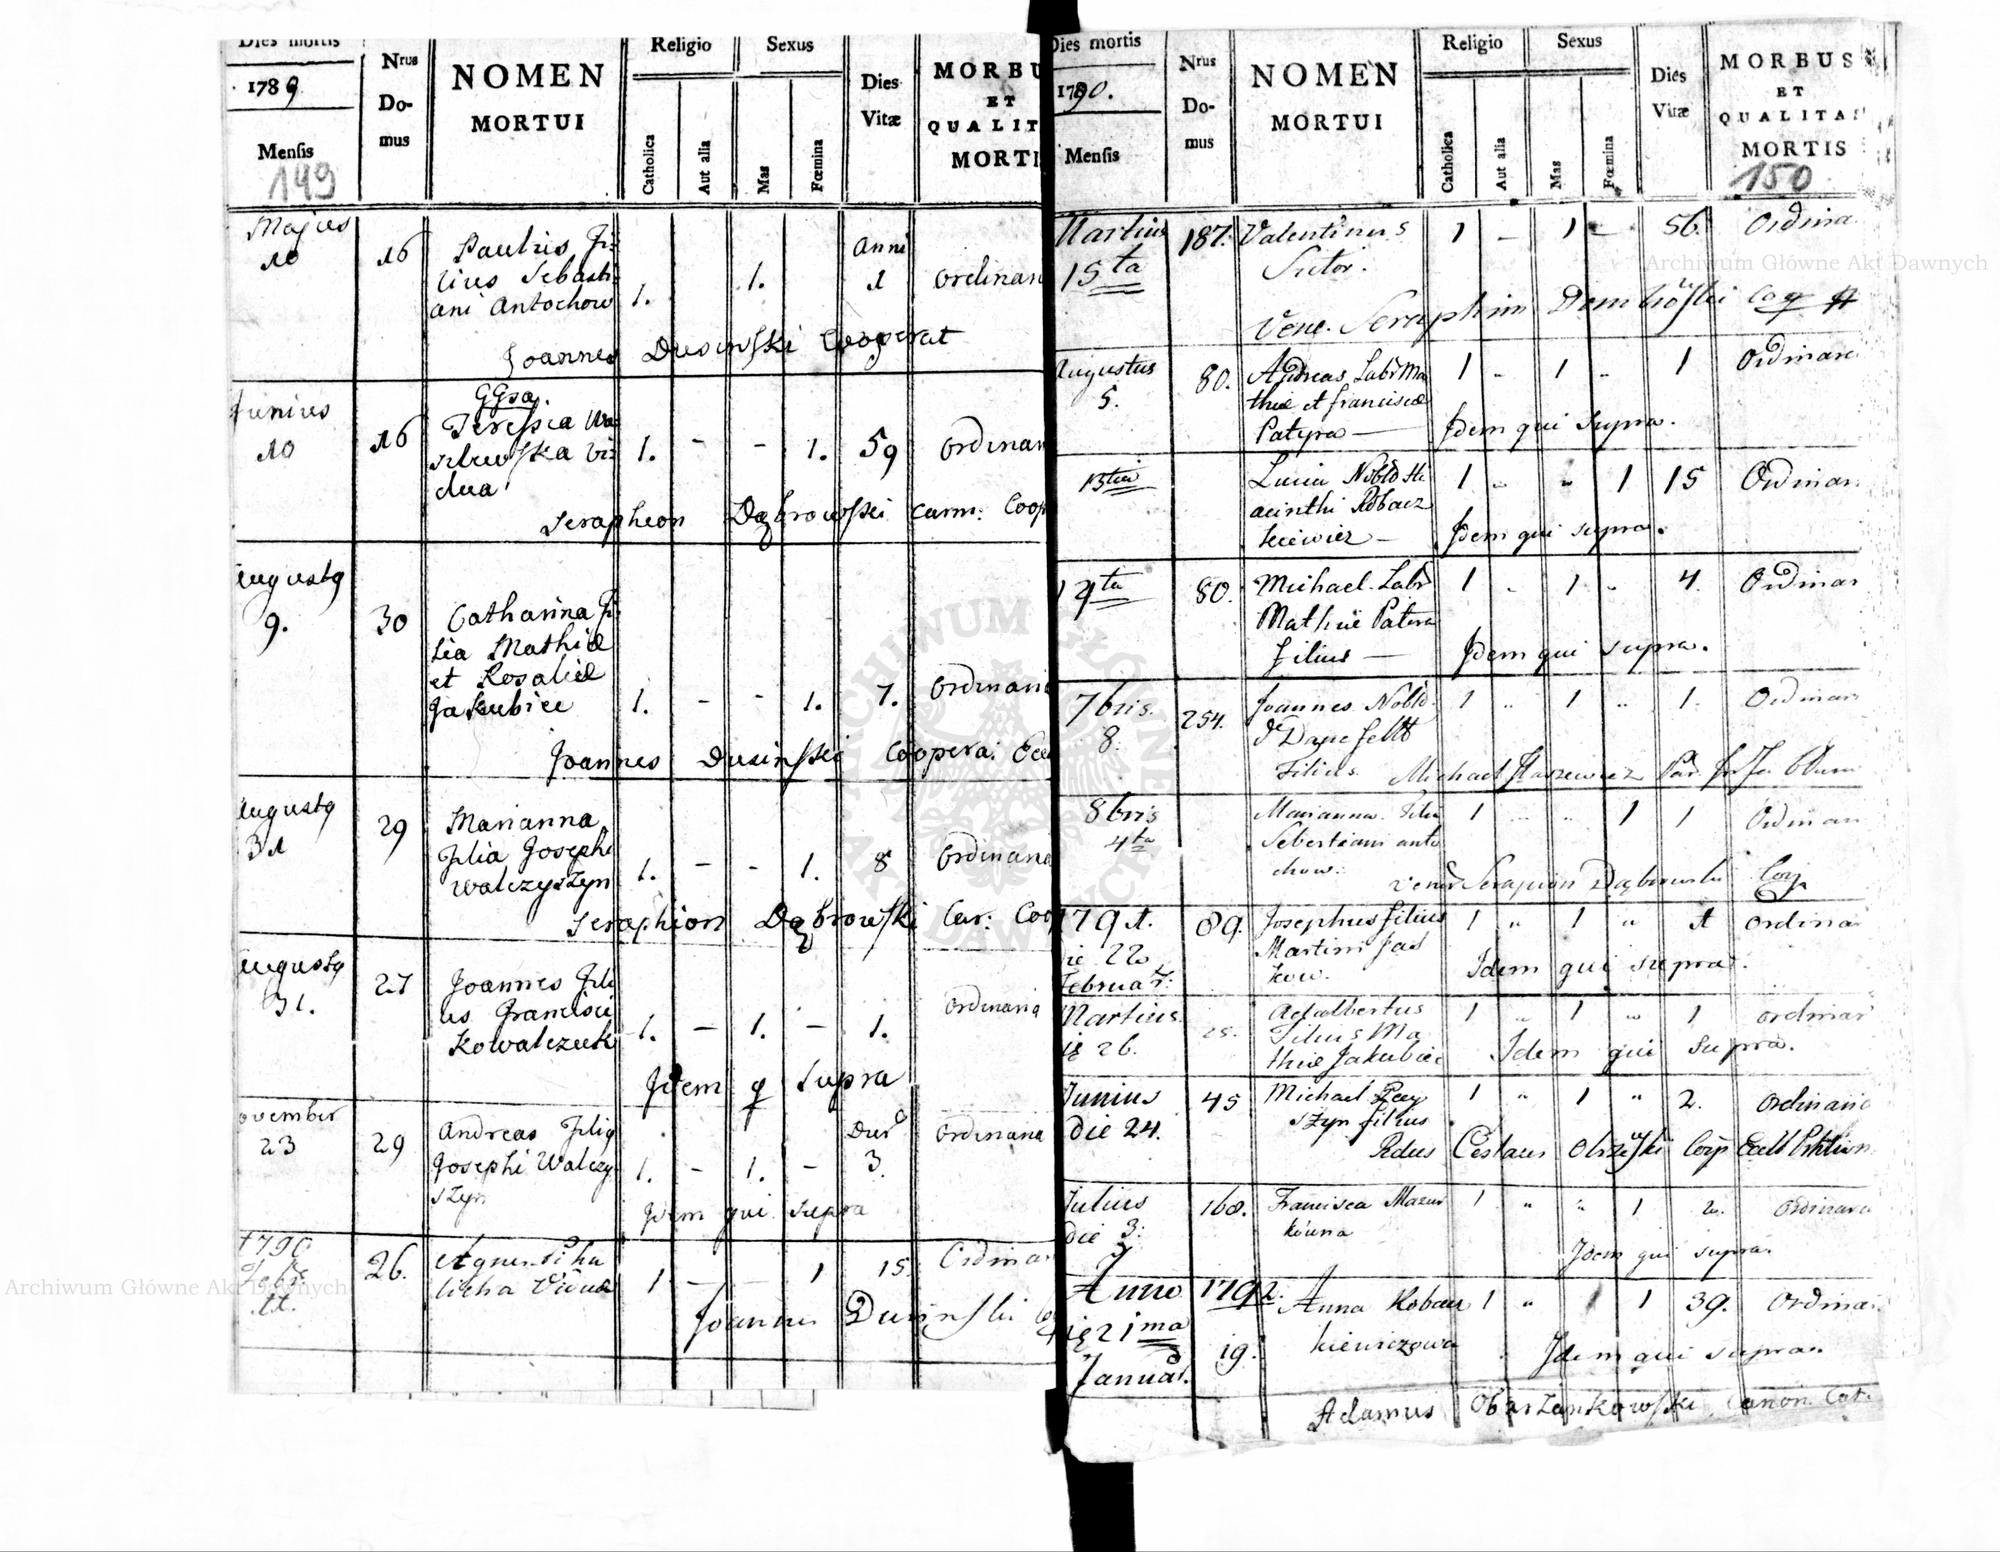 Dies mortis
1789
Mensis
149
Nrus
Do-
mus
NOMEN
MORTUI
Religio
Catholica
Aut alia
Sexus
Mas
Fœmina
Dies
Vitæ
MORBU
ET
QUALIT
MORTI
Majus
10
16
Paulus Fi-
lius Sebasti
ani Antochow
1.
1.
Anni
1
ordinari
Joannes Dusinski Cooperat
Junius
10
16
GGsa.
Teressia Wa
vidua
1. - - 1. 59 ordinar
Seraphion Dąbrowski Carm: Coop
Augustq
9.
30
Catharina Fi
lia Mathiæ
et Rosaliæ
Jakubiec
1. - - 1. 7. Ordinaria
Joannes Dusinski Coopera: Ecc
Augustq
31
29
Marianna
Filia Josephi
Walczyszyn
1. - - 1. 8 Ordinaria
Seraphion Dąbrowski Car: Coo
Augustq
31.
27
Joannes Fili
us Francisci
Kowalczuk
1. - 1. - 1. Ordinaria
Jdem q supra
ovember
23
29
Andreas Filiq
Josephi Walczy
szyn
1. - 1. - 3. Ordinaria
Jdem qui supra
1790
Febr.
11.
26.
Agnes
licha Vidua
1 - - 1 15 Ordinar
Joannes Dusinski
Dies mortis
1790.
Mensis
Nrus
Do-
mus
NOMEN
MORTUI
Religio
Catholica
Aut alia
Sexus
Mas
Fœmina
Dies
Vitæ
MORBUS
ET
QUALITAS
MORTIS
150
Martius
15ta
187.
Valentinus
Sutor.
1 - 1 - 56. Ordina
Vene. Seraphim Dembowski
Augustus
5.
80.
Andreas Labr Ma
thiæ et Franciscæ
Patyra —
1 - 1 - 1 Ordinare
Jdem qui supra.
13tia
Lucia Nobło Hi
acinthi Robacz
kiewicz —
1 1 15 Ordinar
Jdem qui supra.
14ta
80.
Michael Labr
Mathiæ Patera
filius —
1 - 1 4. Ordinar
Jdem qui supra.
7bris.
8.
254.
Joannes Nobło.
Filius.
1 1 1. Ordinar
Michael
8bris
4ta
Marianna Filia
Sebastiani anto
chow:
1 1 1 Ordinar
Vener Serapion Dąbrowski Coop
1791.
ie 22
Februar:
89.
Josephus filius
Martini Jas
kow.
1 " 1 " 1 ordina
Jdem qui supra.
Martius
ie 26.
25.
Adalbertus
Filius Ma
thiæ Jakubiec
1 " 1 " 1 ordinar
Jdem qui supra.
Junius
Die 24.
45
Michael
szyn filius
1 " 1 " 2. Ordinario
Julius
Die 3:
168.
Francisca Mazur
kówna
1 " " 1 2. Ordinaria
Jdem qui supra.
Anno 1792.
ie 21ma
Januar.
19.
Anna Robacz
kiewiczowa
1 " 1 39. Ordinar
Jdem qui supra.
Adamus Obarzankowski Canon. Cat.
Archiwum Główne Akt Dawnych
Archiwum Główne Akt Dawnych
ARCHIWUM GŁÓWNE AKT DAWNYCH